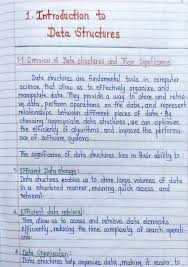 1. Introduction to
Data Structures
1.1 Overview of Data structures and Their Significance
Data structures are fundamental tools in computer
science that allow us to effectively organize and
manipulate data. They provide a way to store and retrie-
ve data, perform operations on the data, and represent
relationships between different pieces of data. By
choosing appropriate data structures, we can optimize
the efficiency of algorithms and improve the performa-
nce of software systems.
The significance of data structures lies in their ability to
1. Efficient Data storage:
Data structures enables us to store large volumes of data
in a structured manner, enabling quick access and
retrieval.
2. Efficient data retrieval:
They allow us to access and retrieve data elements
efficiently, reducing the time complexity of search operati-
ons.
3. Data Organization:
Data structures help organize data, making it easier to